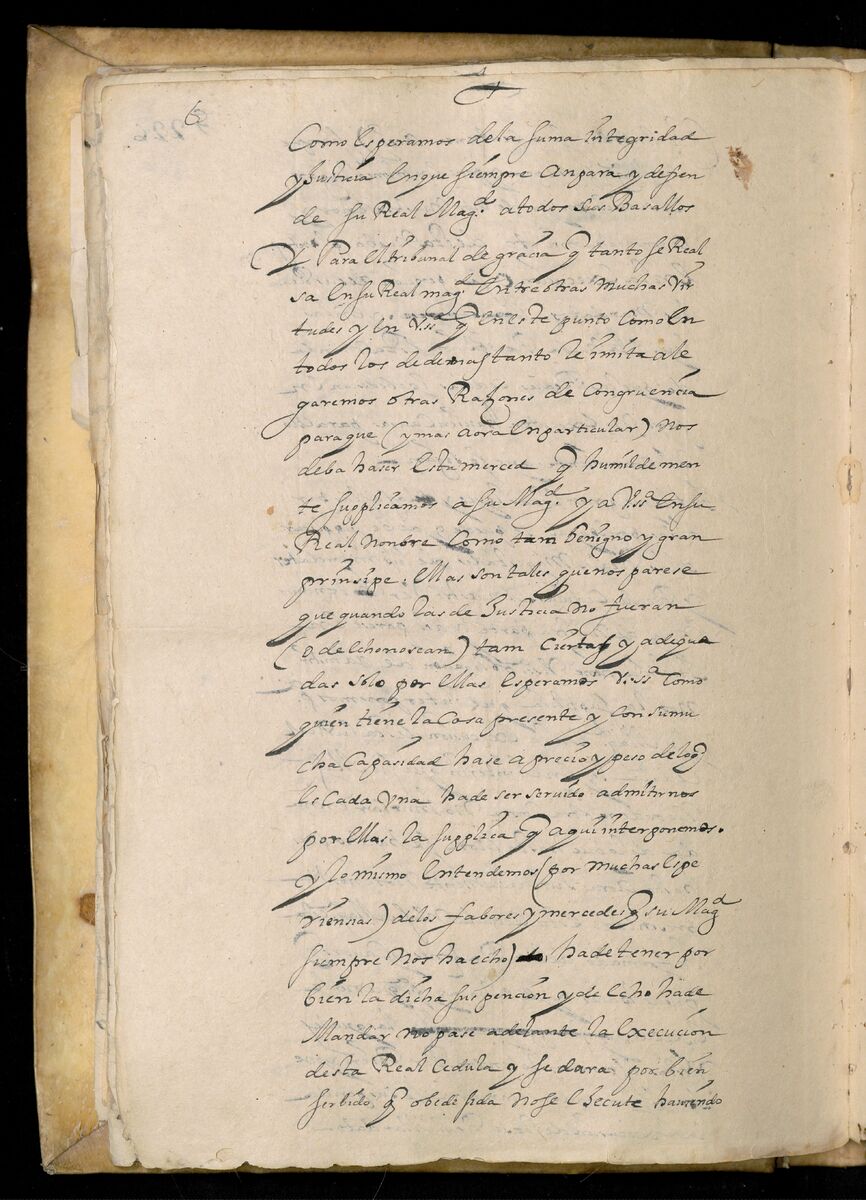 6
Como Esperamos de la suma integridad
y Justicia En que siempre Anpara y defien
de su Real Mag.d a todos sus Basallos
Y Para El tribunal de gracia q tanto se Real
sa En su Real mag.d Entre otras muchas Vir
tudes y En V.ssa q En Este punto Como En
todos los de demas tanto le imita ale
garemos otras Razones de Congruencia
para que (y mas aora En particular) Nos
deba haser Esta merced q humilde men
te supplicamos a su Mag.d y a V.ssa En su
Real Nonbre Como tam benigno y gran
prinsipe. Mas son tales que nos parese
que quando las de Justicia No fueran
(o de Echo no sean) tam Ciertas y adequa
das solo por Ellas Esperamos V.ssa Como
quien tiene la Cosa presente y Con su mu
cha Capasidad hase aprecio y peso de lo q
le Cada Vna ha de ser servido admitirnos
por Ellas la supplica q aqui interponemos.
y lo mismo Entendemos (por muchas Espe
riensias) de los fabores y mercedes q su Mag.d
siempre Nos ha echo) ha de tener por
bien la dicha suspencion y de Echo ha de
Mandar no pase adelante la Execucion
desta Real Cedula y se dara por bien
serbido q obedesida No se Execute haviendo